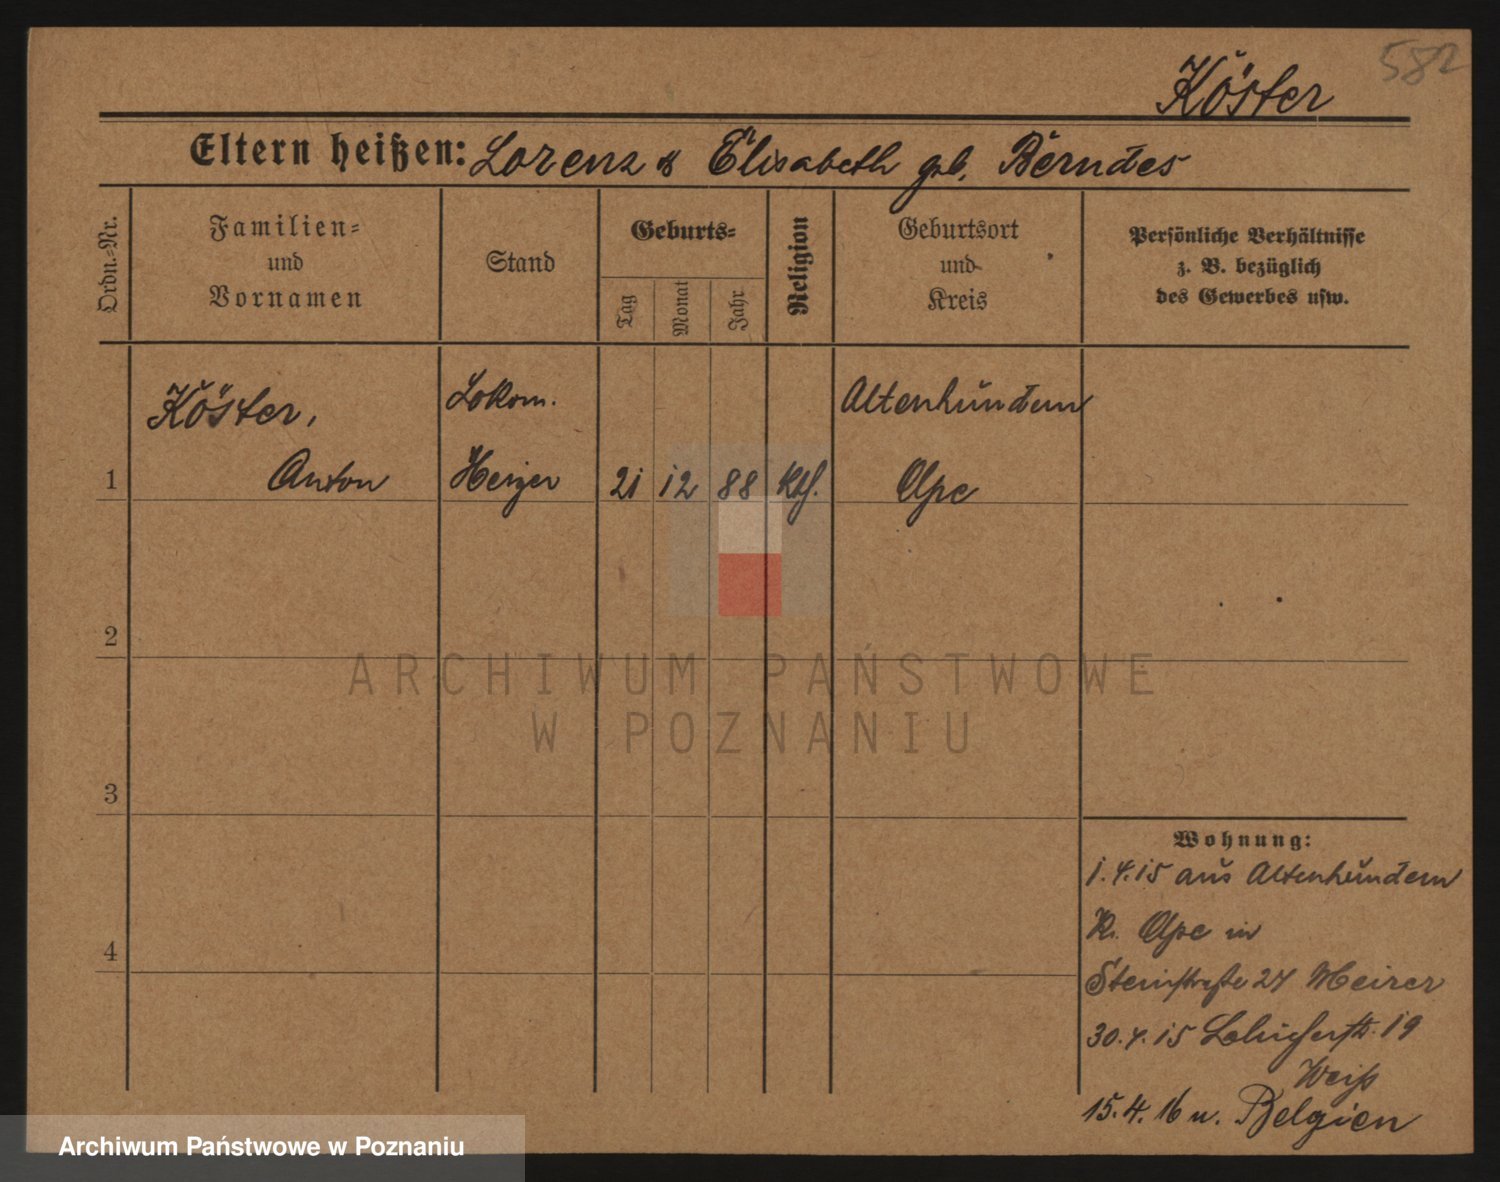 582
Köster
Eltern heißen: Lorenz & Elisabeth geb. Berndes
Ordn.-Nr.
Familien- und Vornamen
Stand
Geburts-
Tag
Monat
Jahr
Religion
Geburtsort und Kreis
Persönliche Verhältnisse z. B. bezüglich des Gewerbes usw.
Köster, Lokom. Altenhundem
1 Anton Heizer 21 12 88 Kth. Olpe
2
3
4
Wohnung:
1.4.15 aus Altenhundem
Kr. Olpe in
Steinstraße 27
30.4.15 19
Weiß
15.4.16 n. Belgien
ARCHIWUM PAŃSTWOWE
W POZNANIU
Archiwum Państwowe w Poznaniu